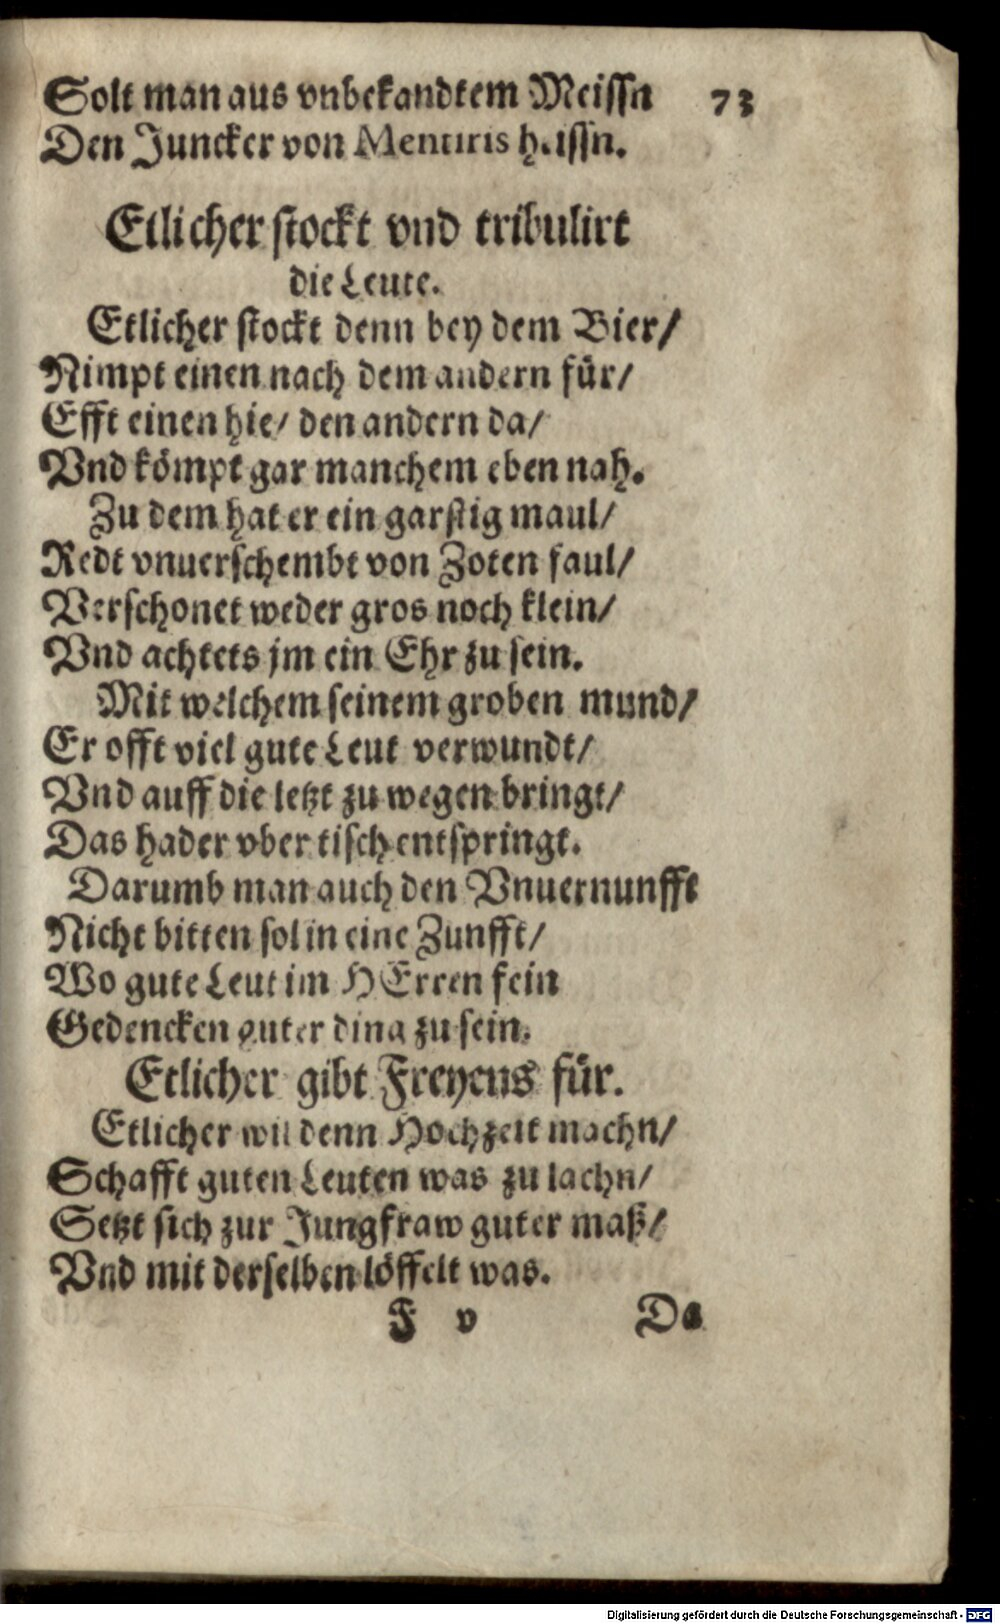 Solt man aus vnbekandtem Meissn 73
Den Juncker von Mentiris heissn.
Etlicher stockt vnd tribulirt
die Leute.
Etlicher stockt denn bey dem Bier/
Nimpt einen nach dem andern für/
Efft einen hie/ den andern da/
Vnd kömpt gar manchem eben nah.
Zu dem hat er ein garstig maul/
Redt vnuerschembt von Zoten faul/
Verschonet weder gros noch klein/
Vnd achtets jm ein Ehr zu sein.
Mit welchem seinem groben mund/
Er offt viel gute Leut verwundt/
Vnd auff die letzt zu wegen bringt/
Das hader vber tisch entspringt.
Darumb man auch den Vnuernunfft
Nicht bitten sol in eine Zunfft/
Wo gute Leut im HErren fein
Gedencken guter ding zu sein.
Etlicher gibt Freyens für.
Etlicher wil denn Hochzeit machn/
Schafft guten Leuten was zu lachn/
Setzt sich zur Jungfraw guter maß/
Vnd mit derselben löffelt was.
F v Da
Digitalisierung gefördert durch die Deutsche Forschungsgemeinschaft - DFG